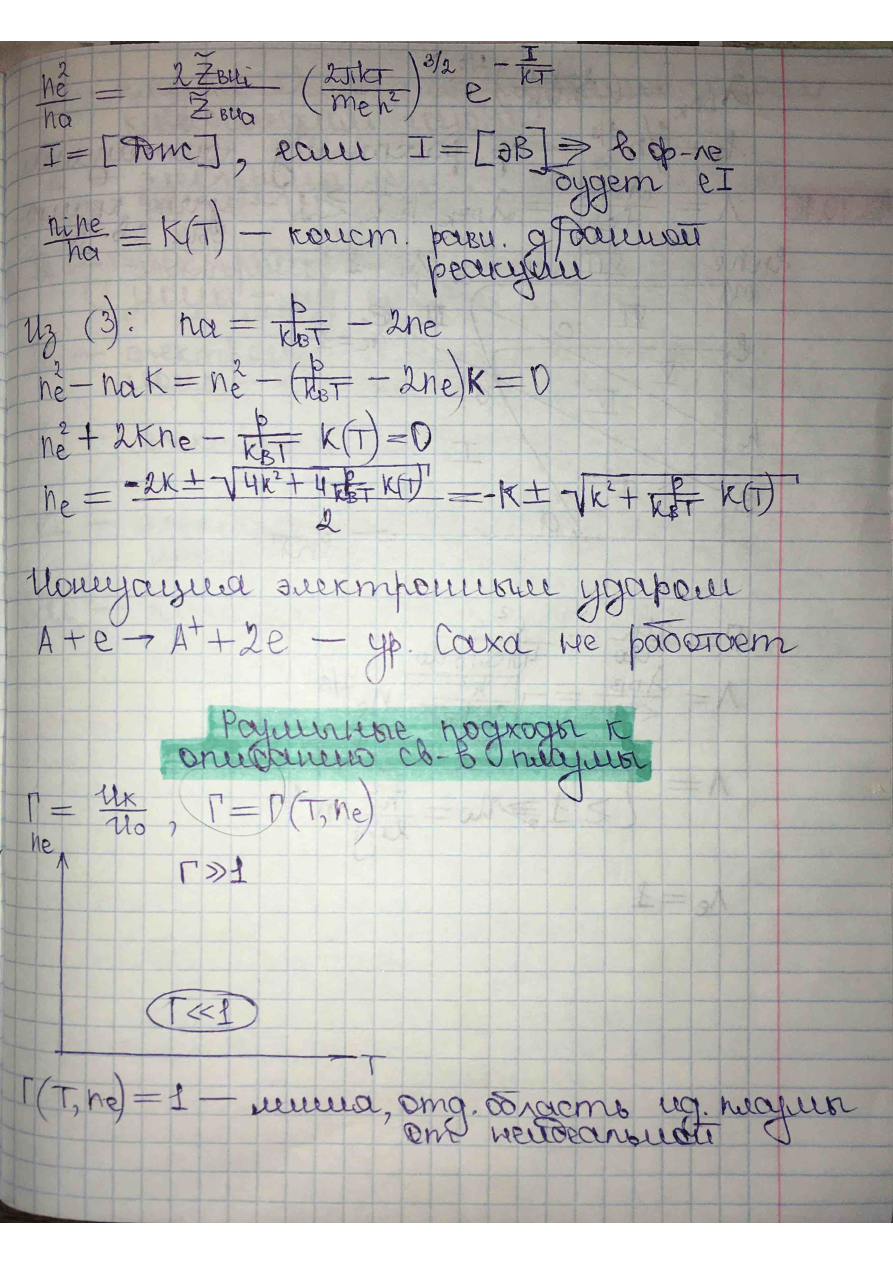 nₑ²/nₐ = 2Z̃внi/Z̃внa (2πkT/mₑh²)^3/2 e^(-I/kT)
I = [Дж], если I = [эВ] ⇒ в ф-ле
будет eI
nᵢnₑ/nₐ ≡ K(T) — конст. равн. д/данной
реакции
Из (3): nₐ = p/k_BT − 2nₑ
nₑ² − nₐK = nₑ² − (p/k_BT − 2nₑ)K = 0
nₑ² + 2Knₑ − p/k_BT K(T) = 0
nₑ = (-2K ± √(4K² + 4 p/k_BT K(T)))/2 = -K ± √(K² + p/k_BT K(T))
Ионизация электронным ударом
A + e → A⁺ + 2e — ур. Саха не работает
Различные подходы к
описанию св-в плазмы
Γ = Uк/U₀, Γ = Γ(T, nₑ)
nₑ
Γ ≫ 1
Γ ≪ 1
T
Γ(T, nₑ) = 1 — линия, отд. область ид. плазмы
от неидеальной